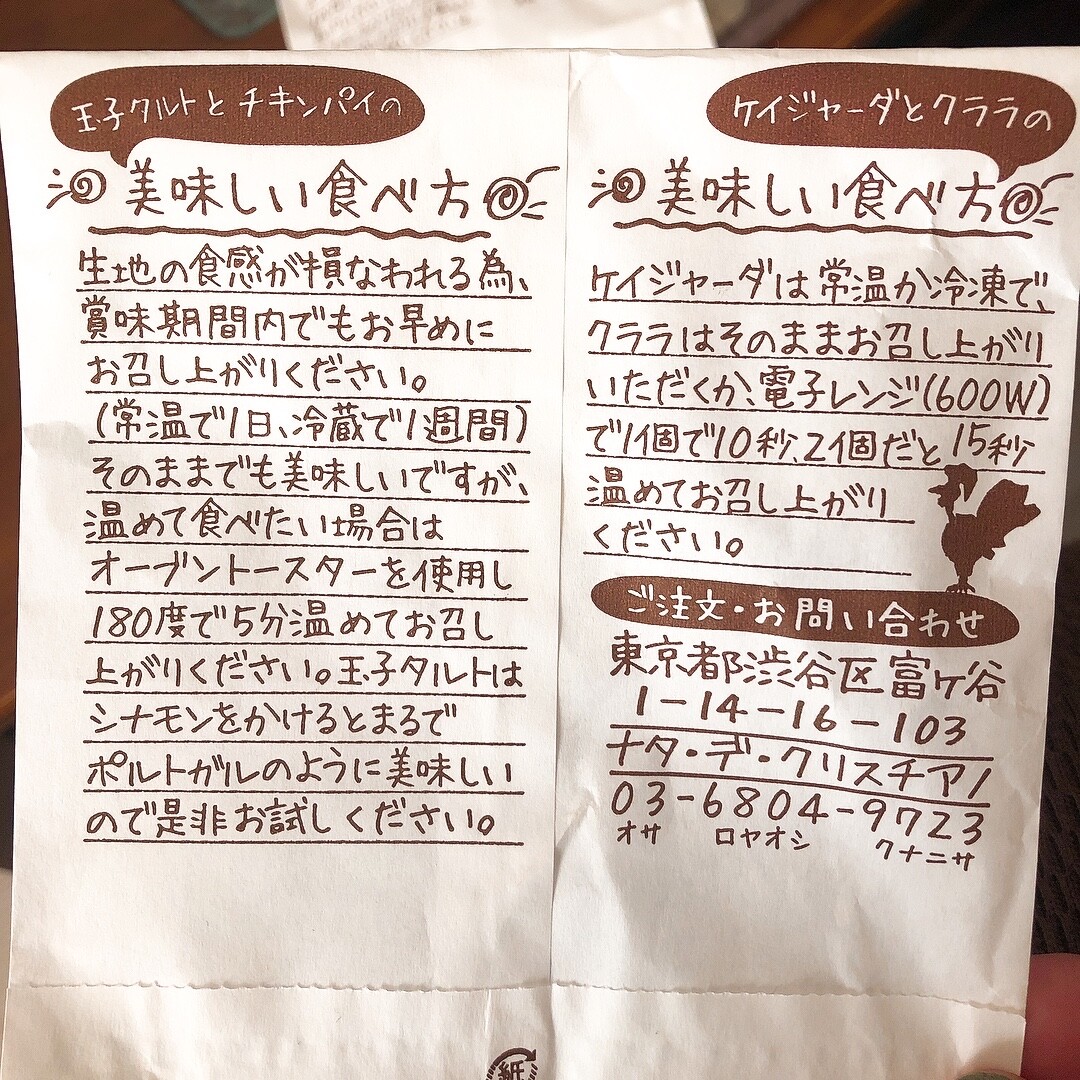 玉子タルトとチキンパイの
美味しい食べ方
生地の食感が損なわれる為、
賞味期間内でもお早めに
お召し上がりください。
(常温で1日、冷蔵で1週間)
そのままでも美味しいですが、
温めて食べたい場合は
オーブントースターを使用し
180度で5分温めてお召し
上がりください。玉子タルトは
シナモンをかけるとまるで
ポルトガルのように美味しい
ので是非お試しください。
ケイジャーダとクララの
美味しい食べ方
ケイジャーダは常温か冷凍で、
クララはそのままお召し上がり
いただくか、電子レンジ(600W)
で1個で10秒、2個だと15秒
温めてお召し上がり
ください。
ご注文・お問い合わせ
東京都渋谷区富ヶ谷
1-14-16-103
ナタ・デ・クリスチアノ
03-6804-9723
オサ ロヤオシ クナニサ
紙